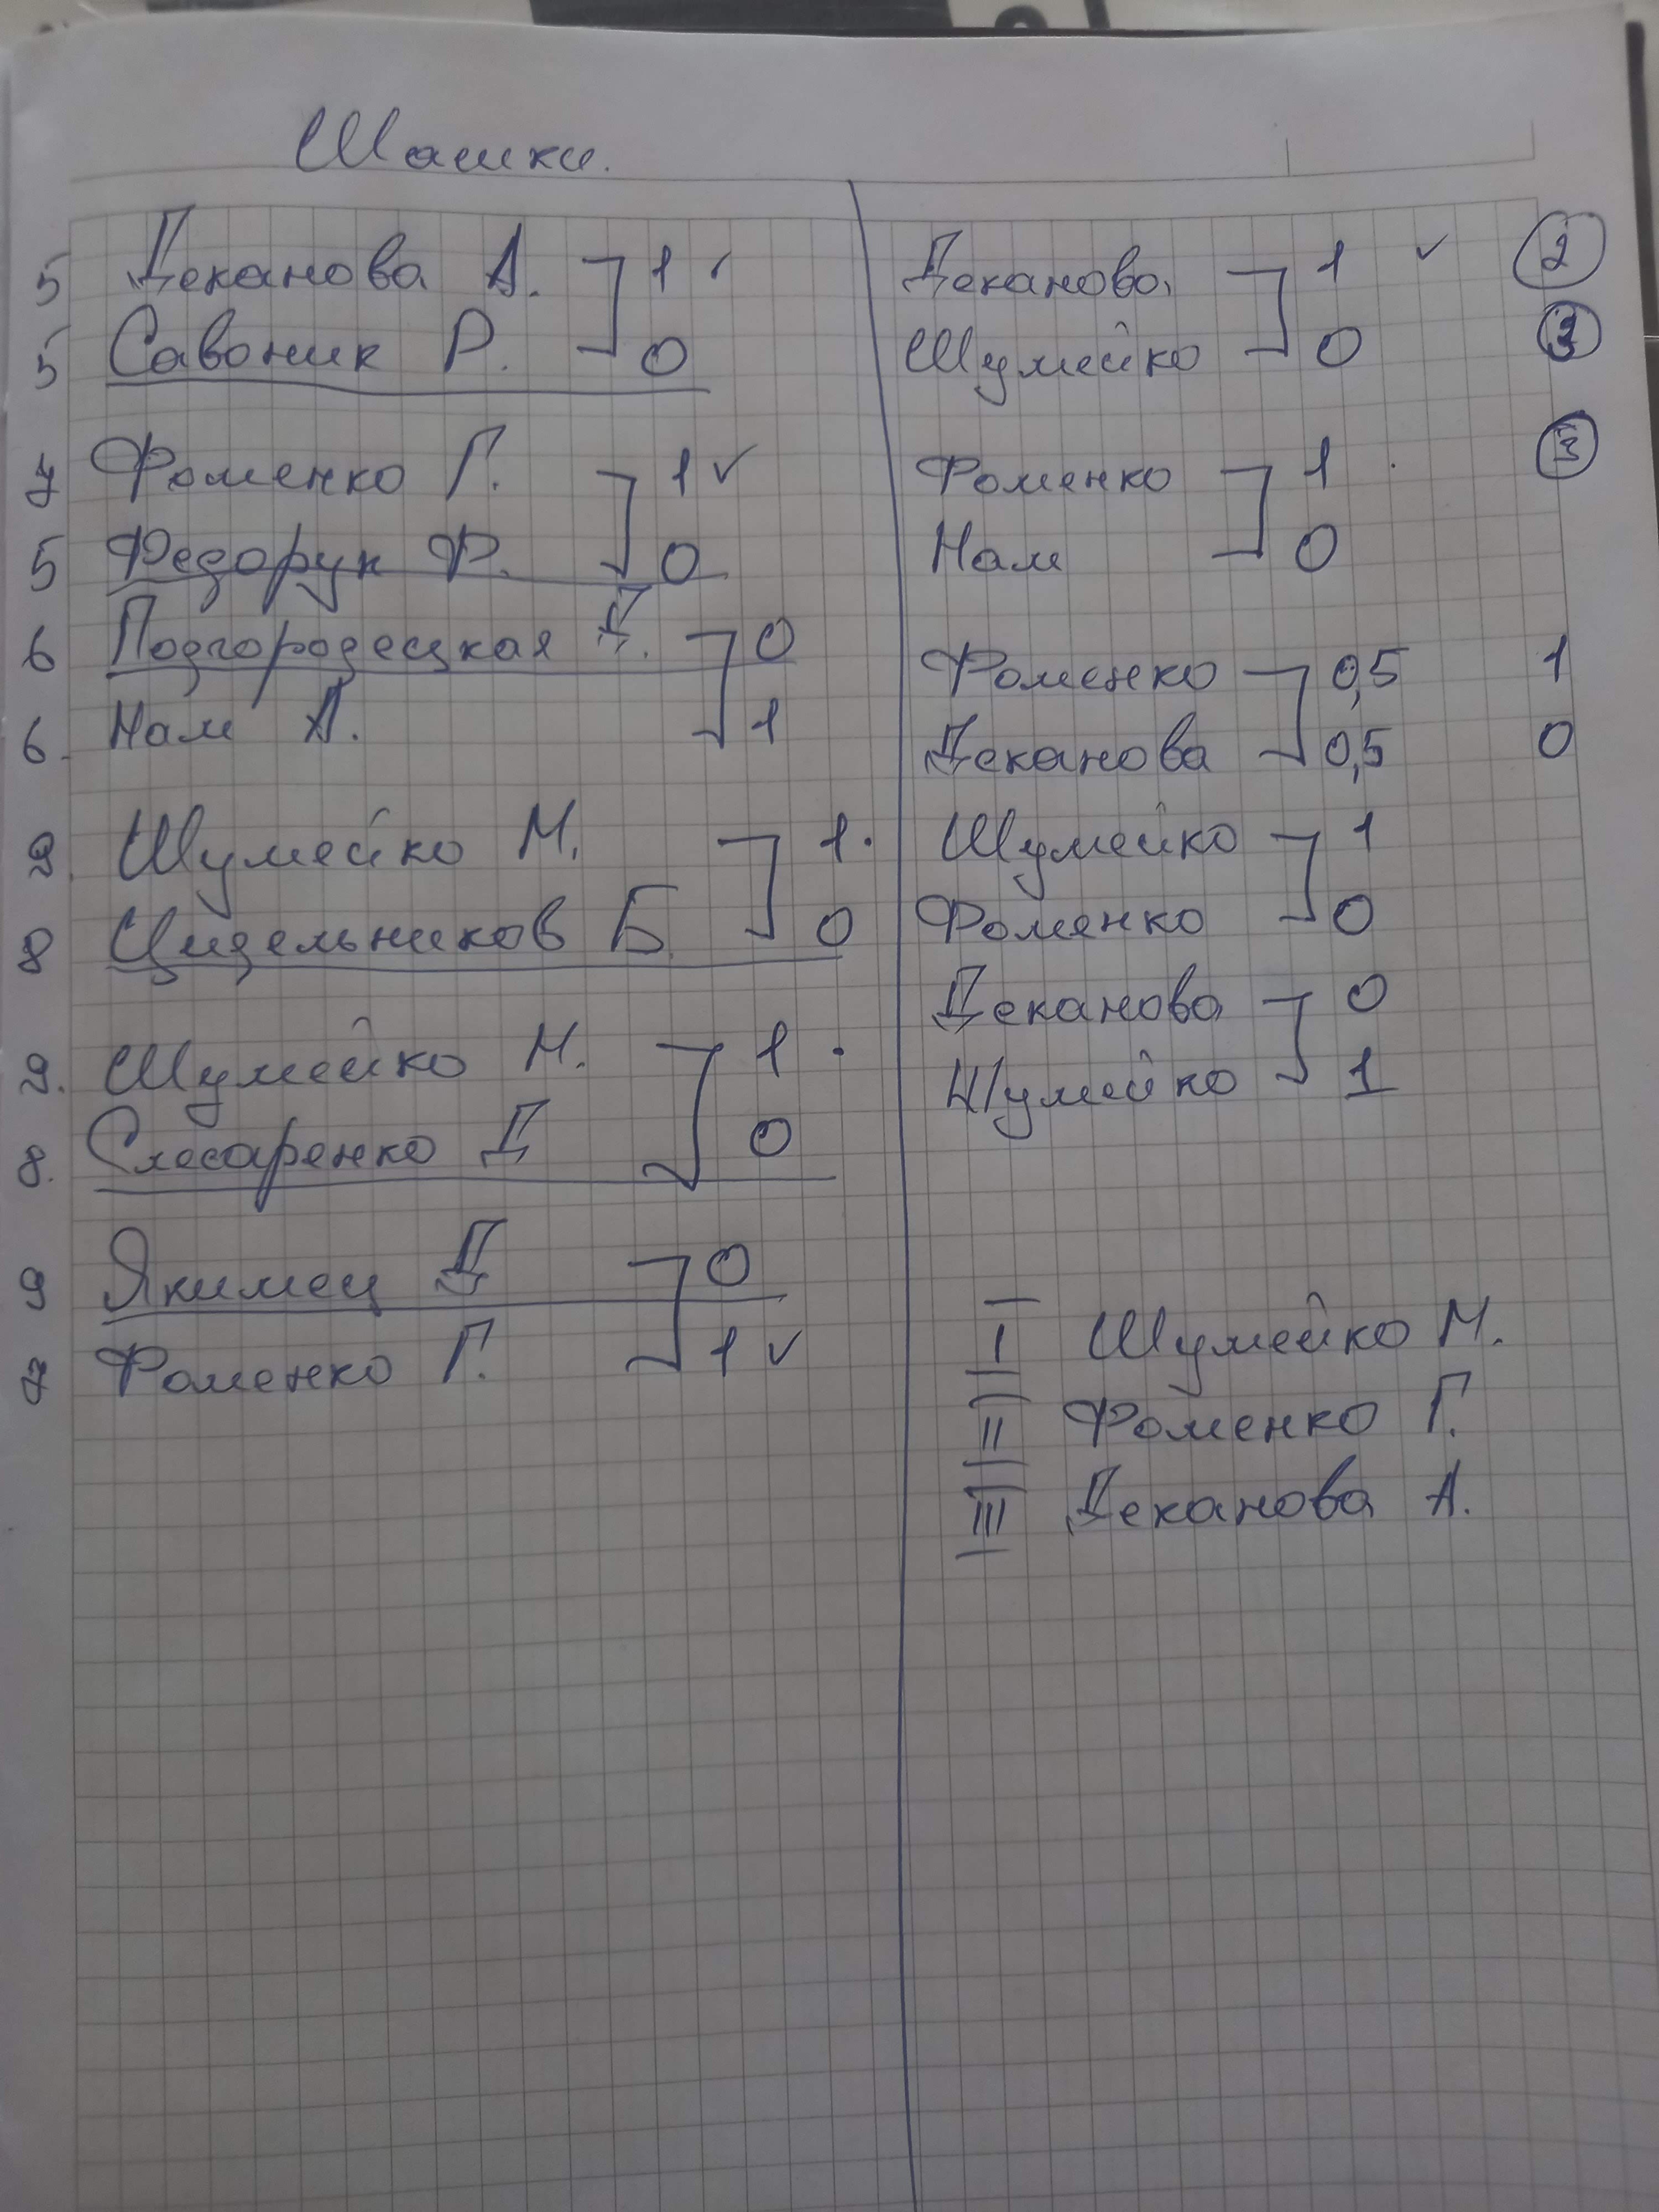 Шашки.
5 Деканова А. 1 ✓
5 Савоник Р. 0
7 Фоменко Г. 1 ✓
5 Федорук Ф. 0
6 Подгородецкая Д. 0
6. Нам А. 1
9. Шумейко М. 1.
8 Цидельников Б. 0
9. Шумейко М. 1.
8. Слесаренко Д 0
9 Якимец Д 0
7 Фоменко Г. 1 ✓
Деканова 1 ✓ 2
Шумейко 0 3
Фоменко 1 . 3
Нам 0
Фоменко 0,5 1
Деканова 0,5 0
Шумейко 1
Фоменко 0
Деканова 0
Шумейко 1
I Шумейко М.
II Фоменко Г.
III Деканова А.